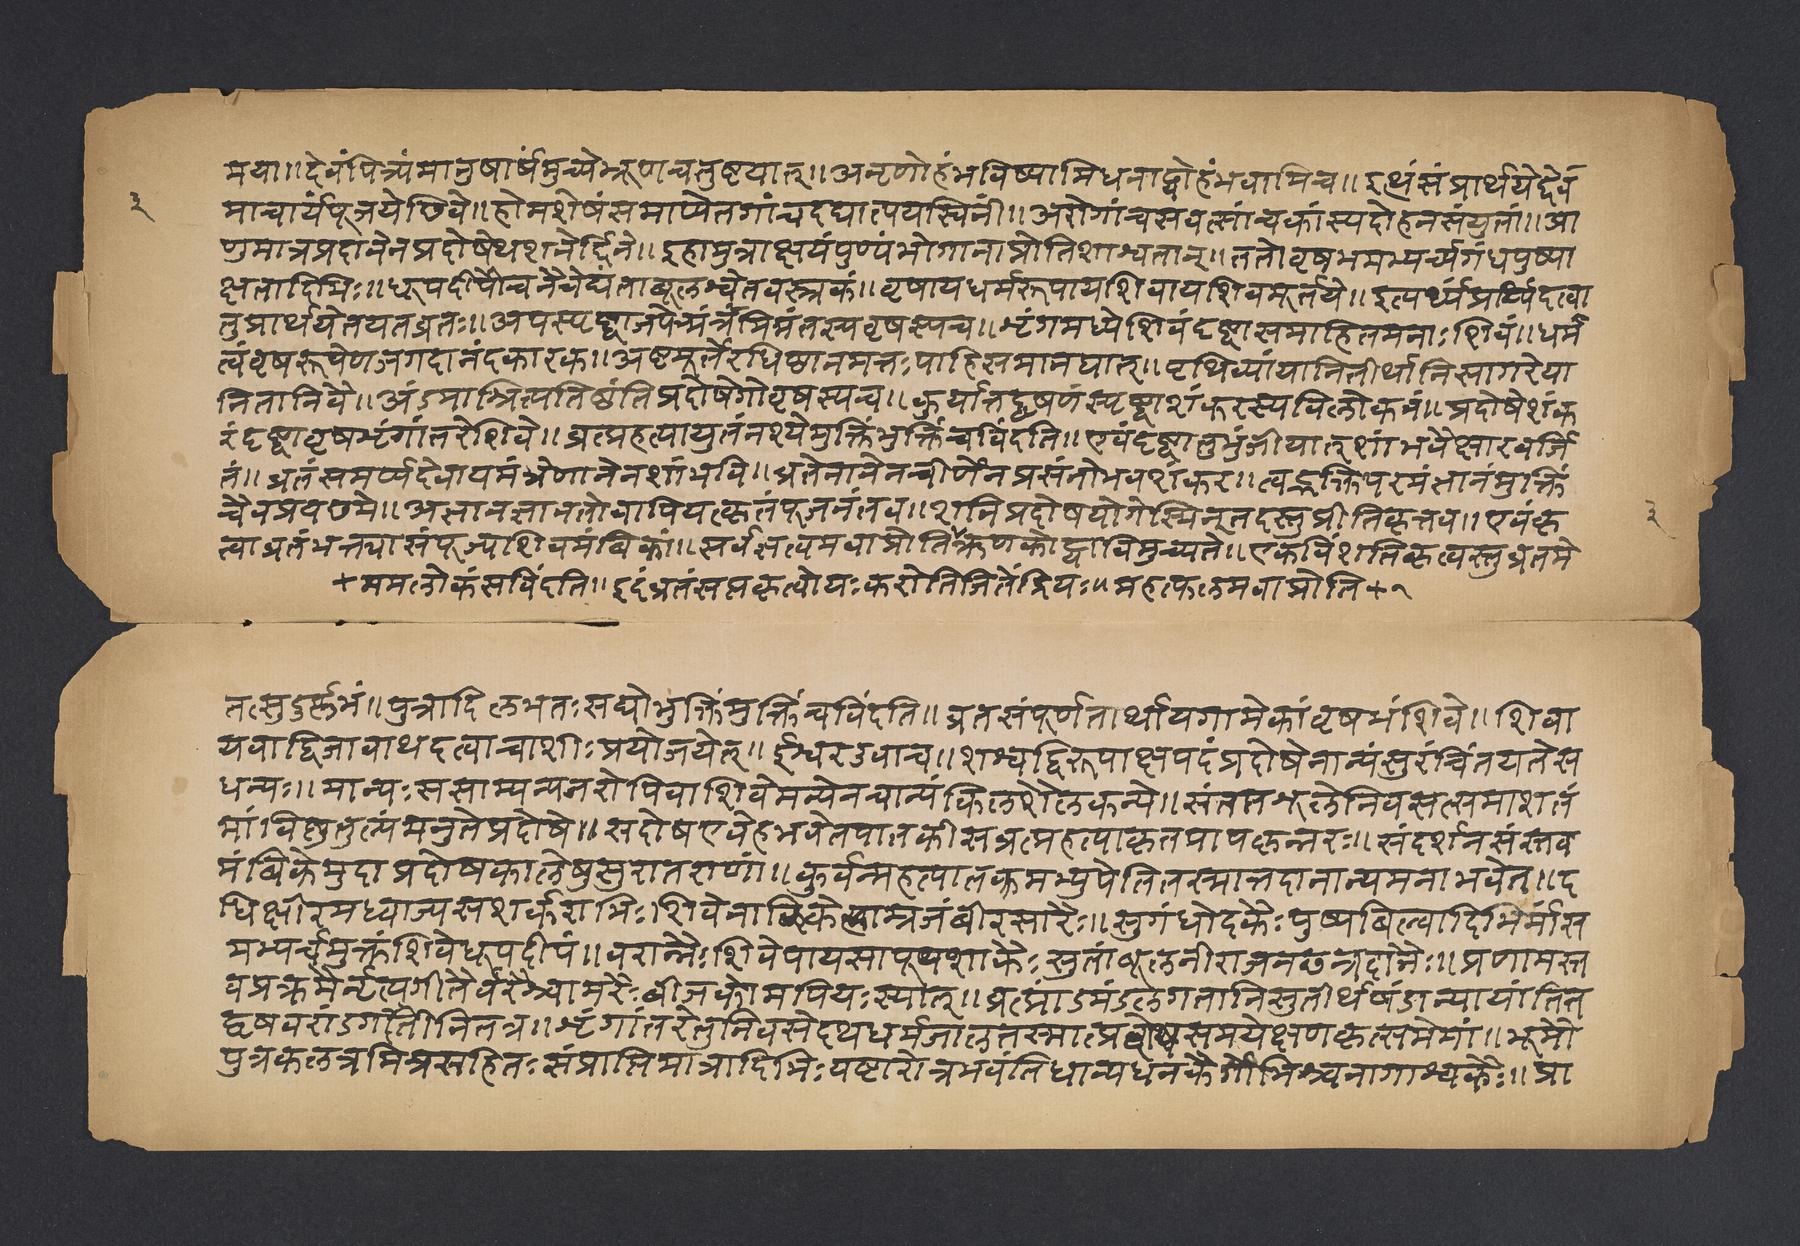 मया॥ देवंपित्र्यंमानुषार्षंमुच्येमृणचतुष्टयात्॥ अनृणोहंभविष्यामिधनाढ्योहंभवामिच॥ इत्थंसंप्रार्थयेद्देवं
३
माचार्यंपूजयेछिवे॥ होमशेषंसमाप्येतगांचदद्यात्पयस्विनीं॥ अरोगांचसवत्सांचकांस्यदोहनसंयुतां॥ आ
णुमात्रप्रदानेनप्रदोषेथशनेर्द्दिने॥ इहामुत्राक्षयंपुण्यंभोगानाप्नोतिशाश्वतान्॥ ततोवृषभमभ्यर्च्यगंधपुष्पा
क्षतादिभिः॥ धूपदीपौचनैवेद्यंतांबूलश्वेतवस्त्रकं॥ वृषायधर्मरूपायशिवायशिवमूर्तये॥ इत्यर्थ्यंप्रार्प्यदत्वा
तुप्रार्थयेतयतव्रतः॥ अपस्पृष्ट्वाजपेन्मंत्रंमिमंतस्यवृषस्यच॥ शृंगमध्येशिवंदृष्ट्वासमाहितमनाः शिवं॥ धर्म
त्वंवृषरूपेणजगदानंदकारक॥ अष्टमूर्तेरधिष्ठानमत्तः पाहिसमामघात्॥ पृथिव्यांयानितीर्थानिसागरेया
नितानिवै॥ अंडमाश्रित्यतिष्ठंतिप्रदोषेगोवृषस्यच॥ कुर्यात्तद्वृषणंस्पृष्ट्वाशंकरस्यविलोकनं॥ प्रदोषेशंक
रंदृष्ट्वावृषभशृंगांतरेशिवे॥ ब्रत्महत्यायुतंनश्येमुक्तिंभुक्तिंचविंदति॥ एवंदृष्ट्वातुभुंजीयात्शांभवैक्षारवर्जि
तं॥ व्रतंसमर्प्यदेवायमंत्रेणानेनशांभवि॥ व्रतेनानेनचीर्णेनप्रसंनोभवशंकर॥ त्वद्भक्तिंपरमंज्ञानंमुक्तिं
चैवप्रयछमे॥ अज्ञानज्ञानतोवापियत्कृतंपूजनंतव॥ शनिप्रदोषयोगेस्मिन्तदस्तुप्रीतिकृत्तव॥ एवंकृ
३
त्वाव्रतंभक्त्यासंपूज्यशिवमंबिकां॥ सर्वज्ञत्वमवाप्नोतिऋणकोट्याविमुच्यते॥ एकविंशतिकृत्वस्तुव्रतमे
+ममलोकंसविंदति॥ इदंव्रतंसप्तकृत्वोयः करोतिजितेंद्रियः॥ महत्फलमवाप्नोति+२
तत्सुदुर्ल्लभं॥ पुत्रादि लभतः सद्योभुक्तिंमुक्तिंचविंदति॥ व्रतसंपूर्णतार्थायगामेकांवृषभंशिवे॥ शिवा
यवाद्विजावाथदत्वाचाशीः प्रयोजयेत्॥ ईश्वरउवाच॥ शश्वद्विरूपाक्षपदंप्रदोषेनान्यंसुरंचिंतयतेस
धन्यः॥ मान्यः ससाम्यन्यनरोपिवाशिवेमन्येनचान्यंकिलशैलकन्ये॥ संततमूलेनिवसत्समाशतं
मांविष्णुतुल्यंमनुतेप्रदोषे॥ सदोषएवेहभवेतपातकीसब्रत्महत्याकृतपापकृन्नरः॥ संदर्शनसंस्तव
मंबिकेमुदा प्रदोषकालेषुसुरातराणां॥ कुर्वन्महत्पातकमभ्युपेतितस्मात्तदानान्यमनाभवेत्॥ द
धिक्षीरमध्वाज्यसशर्कराभिः शिवेनालिकेलाम्रजंबीरसारैः॥ सुगंधोदकैः पुष्पबिल्वादिभिर्मांस
मभ्यर्च्यमुक्तंशिवेधूपदीपं॥ वरान्नैः शिवेपायसापूपशाकैः सुतांबूलनीराजनछत्रदानैः॥ प्रणामस्त
वप्रक्रमैर्नृत्यगीतैर्वरैश्चामरैः बीजकोमपियः स्यात्॥ ब्रत्मांडमंडलगतानिसुतीर्थषंडान्यायांतित
द्वृषवरांडगतानितत्र॥ शृंगांतरेतुनिवसेदथधर्मजालतस्मात्प्रदोषसमयेक्षणकृत्समेमां॥ भूमौ
पुत्रकलत्रमित्रसहितः संप्राप्तिमात्रादिभिः पष्टारोत्रभवंतिधान्यधनकैर्गोभिश्चनागाश्वकैः॥ प्रा